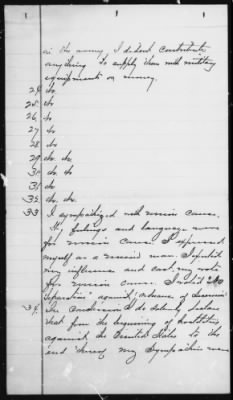 in the army, I did not contribute
anything to supply them with military
equipments or money.
24 No
25 No
26 No
27 No
28 No
29 No. No.
30 No. No
31 No
32 No. No.
33 I sympathized with union cause.
My feelings and language were
for union cause I expressed
myself as a union man I exerted
my influence and cast my vote
for union cause. I voted "No
Separation" against
34 The Claimant do solemnly declare
that from the beginning of hostilities
against the United States to the
end thereof my sympathies were